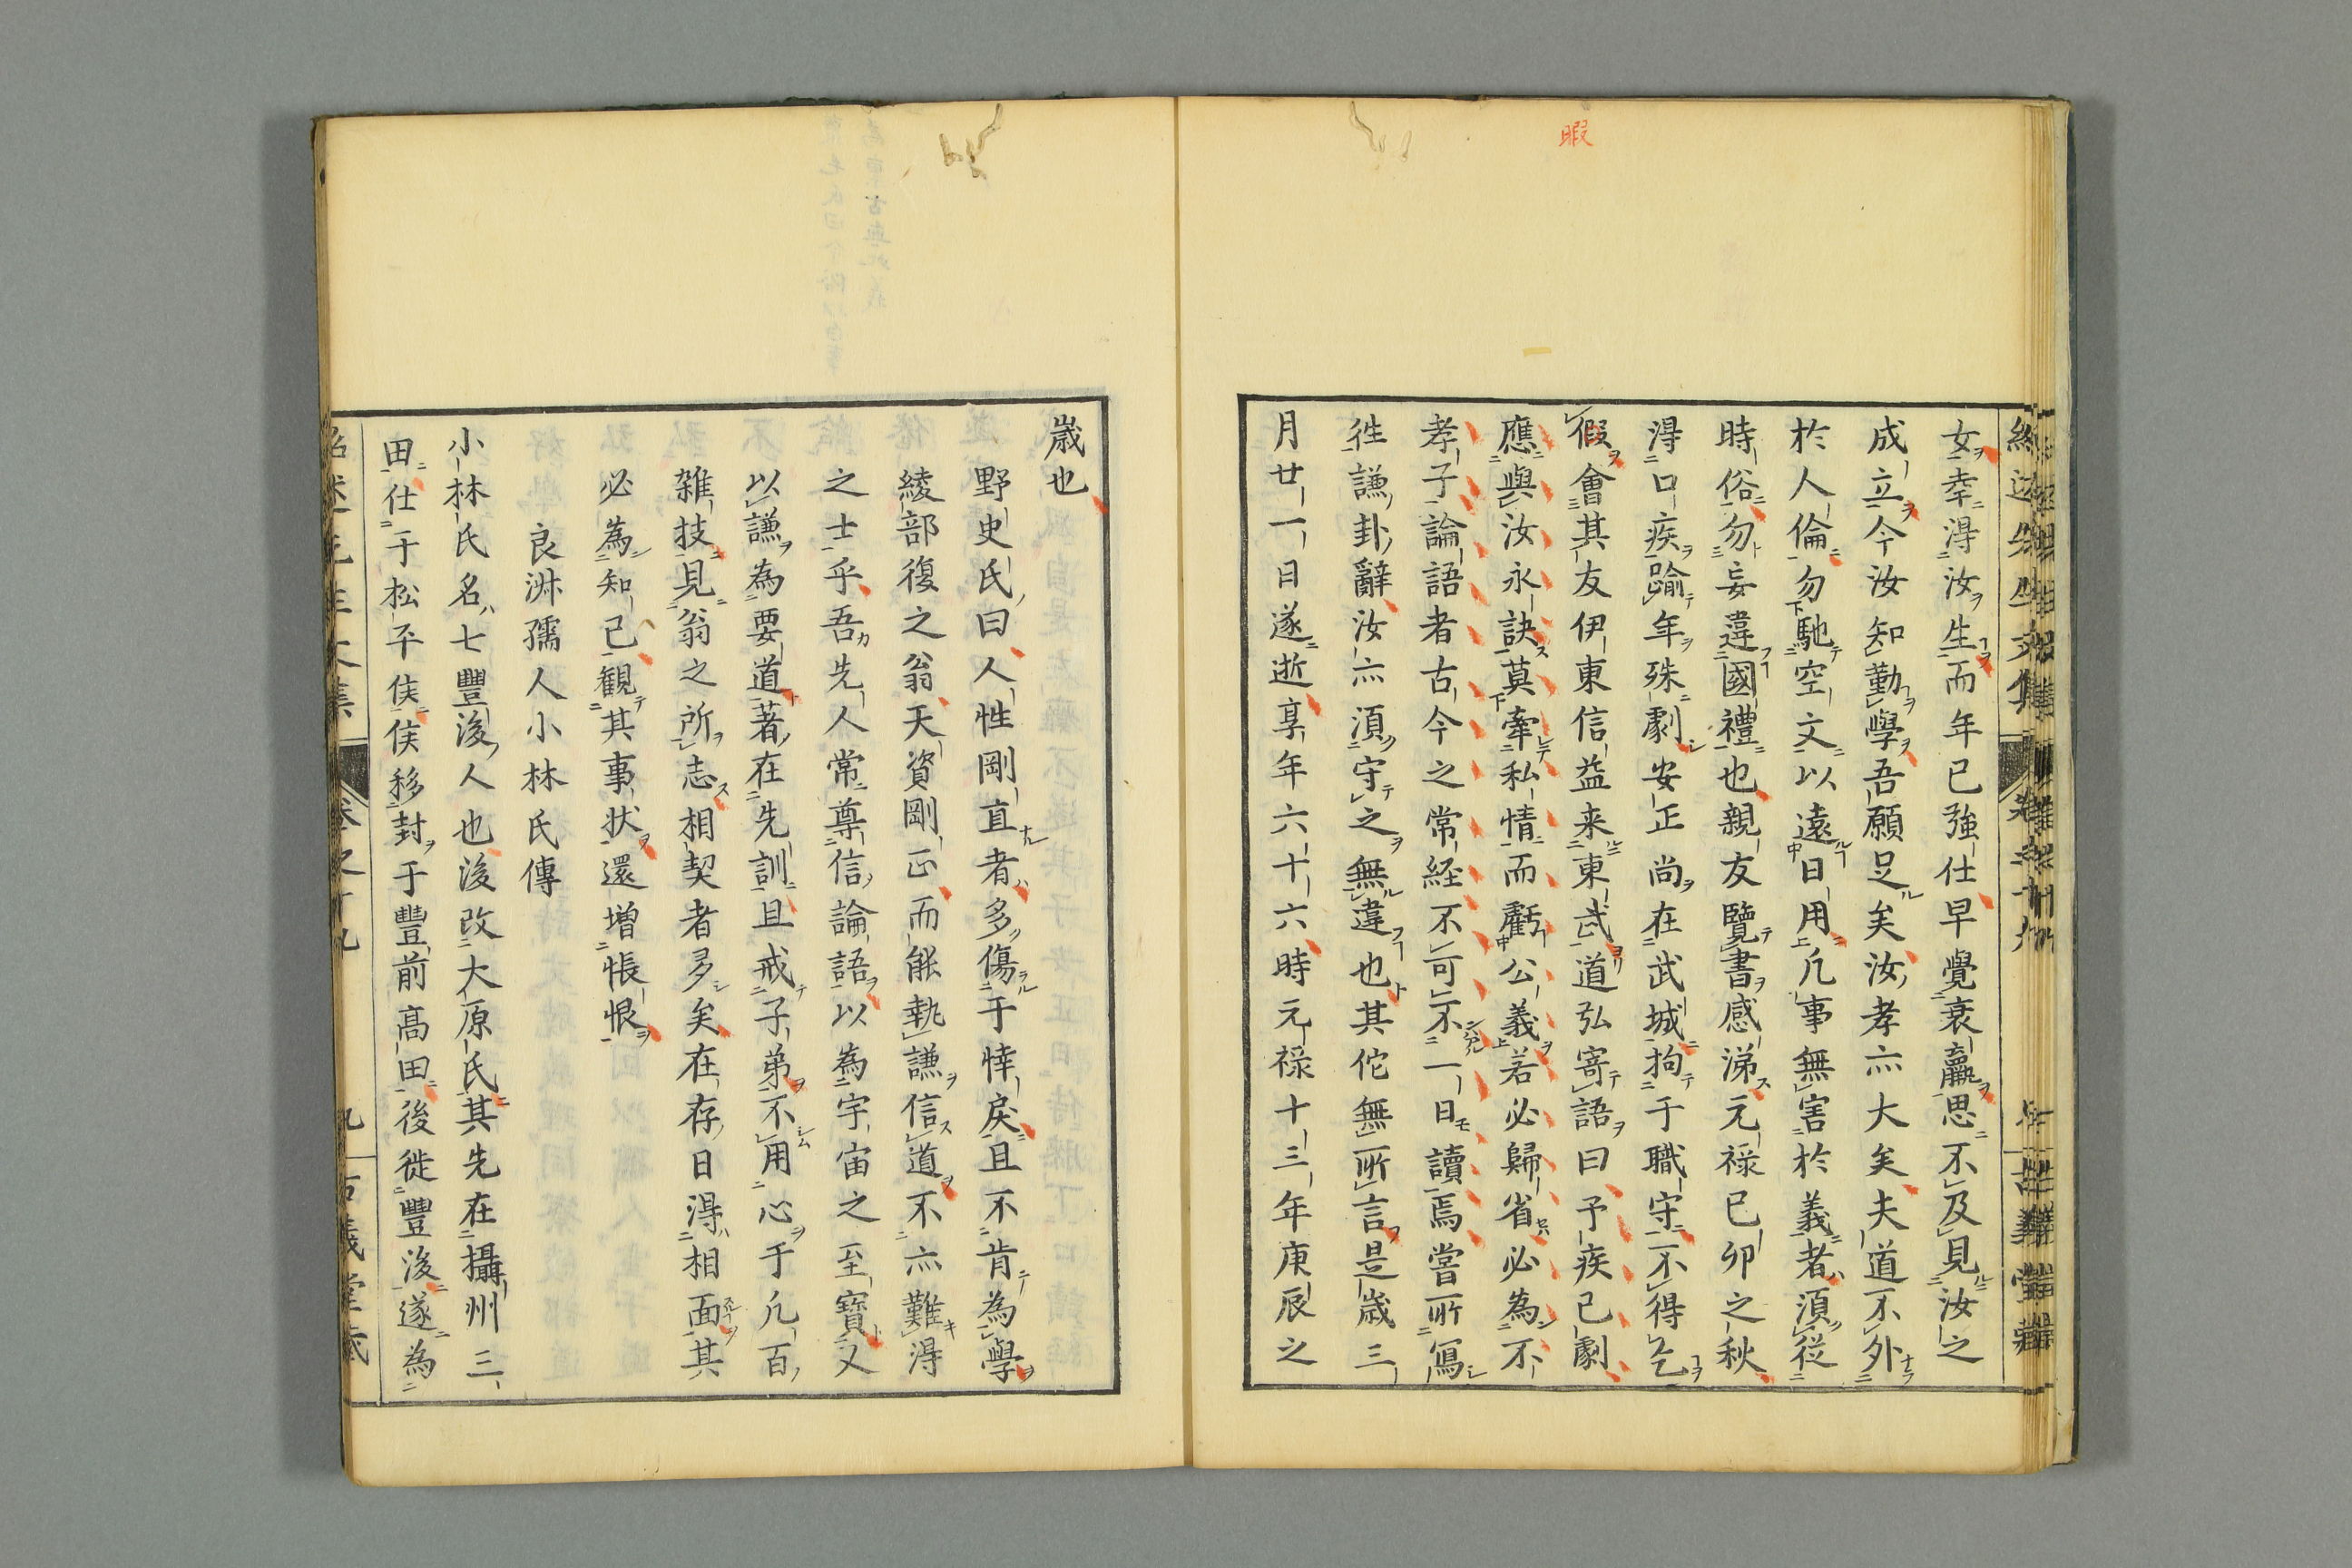 暇
女幸得汝生而年已強仕早覺衰羸思不及見汝之
成立今汝知勤學吾願足矣汝孝亦大矣夫道不外
於人倫勿馳空文以遠日用凡事無害於義者須從
時俗勿妄違國禮也親友覽書感涕元祿己卯之秋
得口疾踰年殊劇安正尚在武城拘于職守不得乞
假會其友伊東信益来東武道弘寄語曰予疾已劇
應與汝永訣莫牽私情而虧公義若必歸省必為不
孝子論語者古今之常経不可不一日讀焉嘗所寫
徃謙卦辭汝亦須守之無違也其佗無所言是歳三
月廿一日遂逝享年六十六時元祿十三年庚辰之
歳也
野史氏曰人性剛直者多傷于悻戾且不肯為學
綾部復之翁天資剛正而能執謙信道不亦難得
之士乎吾先人常尊信論語以為宇宙之至寶又
以謙為要道著在先訓且戒子弟不用心于凡百
雑技見翁之所志相契者多矣在存日得相面其
必為知己觀其事状還增悵恨
良淋孺人小林氏傳
小林氏名七豐後人也後改大原氏其先在攝州三
田仕于松平侯侯移封于豐前高田後徙豐後遂為